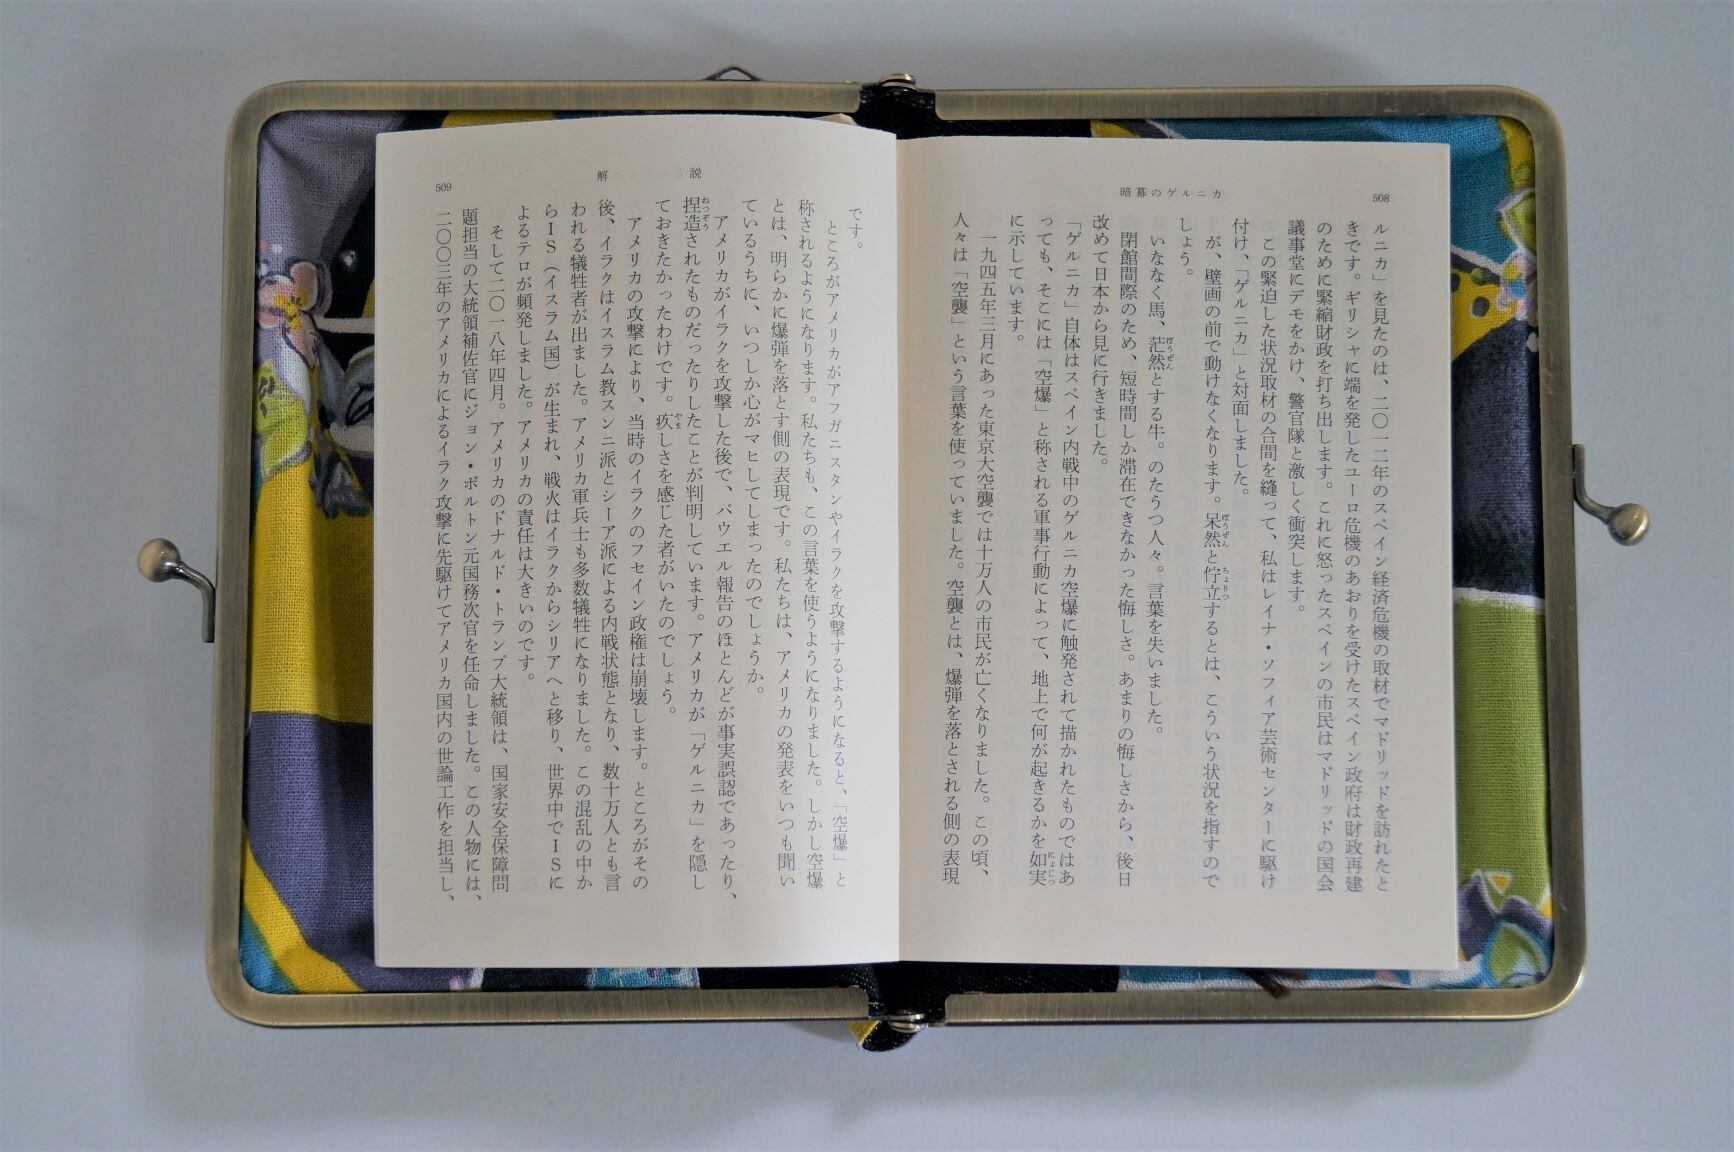 508
暗幕のゲルニカ
ルニカ」を見たのは、二〇一二年のスペイン経済危機の取材でマドリッドを訪れたと
きです。ギリシャに端を発したユーロ危機のあおりを受けたスペイン政府は財政再建
のために緊縮財政を打ち出します。これに怒ったスペインの市民はマドリッドの国会
議事堂にデモをかけ、警官隊と激しく衝突します。
この緊迫した状況取材の合間を縫って、私はレイナ・ソフィア芸術センターに駆け
付け、「ゲルニカ」と対面しました。
が、壁画の前で動けなくなります。呆然と佇立するとは、こういう状況を指すので
しょう。
いななく馬、茫然とする牛。のたうつ人々。言葉を失いました。
閉館間際のため、短時間しか滞在できなかった悔しさ。あまりの悔しさから、後日
改めて日本から見に行きました。
「ゲルニカ」自体はスペイン内戦中のゲルニカ空爆に触発されて描かれたものではあ
っても、そこには「空爆」と称される軍事行動によって、地上で何が起きるかを如実
に示しています。
一九四五年三月にあった東京大空襲では十万人の市民が亡くなりました。この頃、
人々は「空襲」という言葉を使っていました。空襲とは、爆弾を落とされる側の表現
509
解説
です。
ところがアメリカがアフガニスタンやイラクを攻撃するようになると、「空爆」と
称されるようになります。私たちも、この言葉を使うようになりました。しかし空爆
とは、明らかに爆弾を落とす側の表現です。私たちは、アメリカの発表をいつも聞い
ているうちに、いつしか心がマヒしてしまったのでしょうか。
アメリカがイラクを攻撃した後で、パウエル報告のほとんどが事実誤認であったり、
捏造されたものだったりしたことが判明しています。アメリカが「ゲルニカ」を隠し
ておきたかったわけです。疚しさを感じた者がいたのでしょう。
アメリカの攻撃により、当時のイラクのフセイン政権は崩壊します。ところがその
後、イラクはイスラム教スンニ派とシーア派による内戦状態となり、数十万人とも言
われる犠牲者が出ました。アメリカ軍兵士も多数犠牲になりました。この混乱の中か
らＩＳ（イスラム国）が生まれ、戦火はイラクからシリアへと移り、世界中でＩＳに
よるテロが頻発しました。アメリカの責任は大きいのです。
そして二〇一八年四月。アメリカのドナルド・トランプ大統領は、国家安全保障問
題担当の大統領補佐官にジョン・ボルトン元国務次官を任命しました。この人物には、
二〇〇三年のアメリカによるイラク攻撃に先駆けてアメリカ国内の世論工作を担当し、